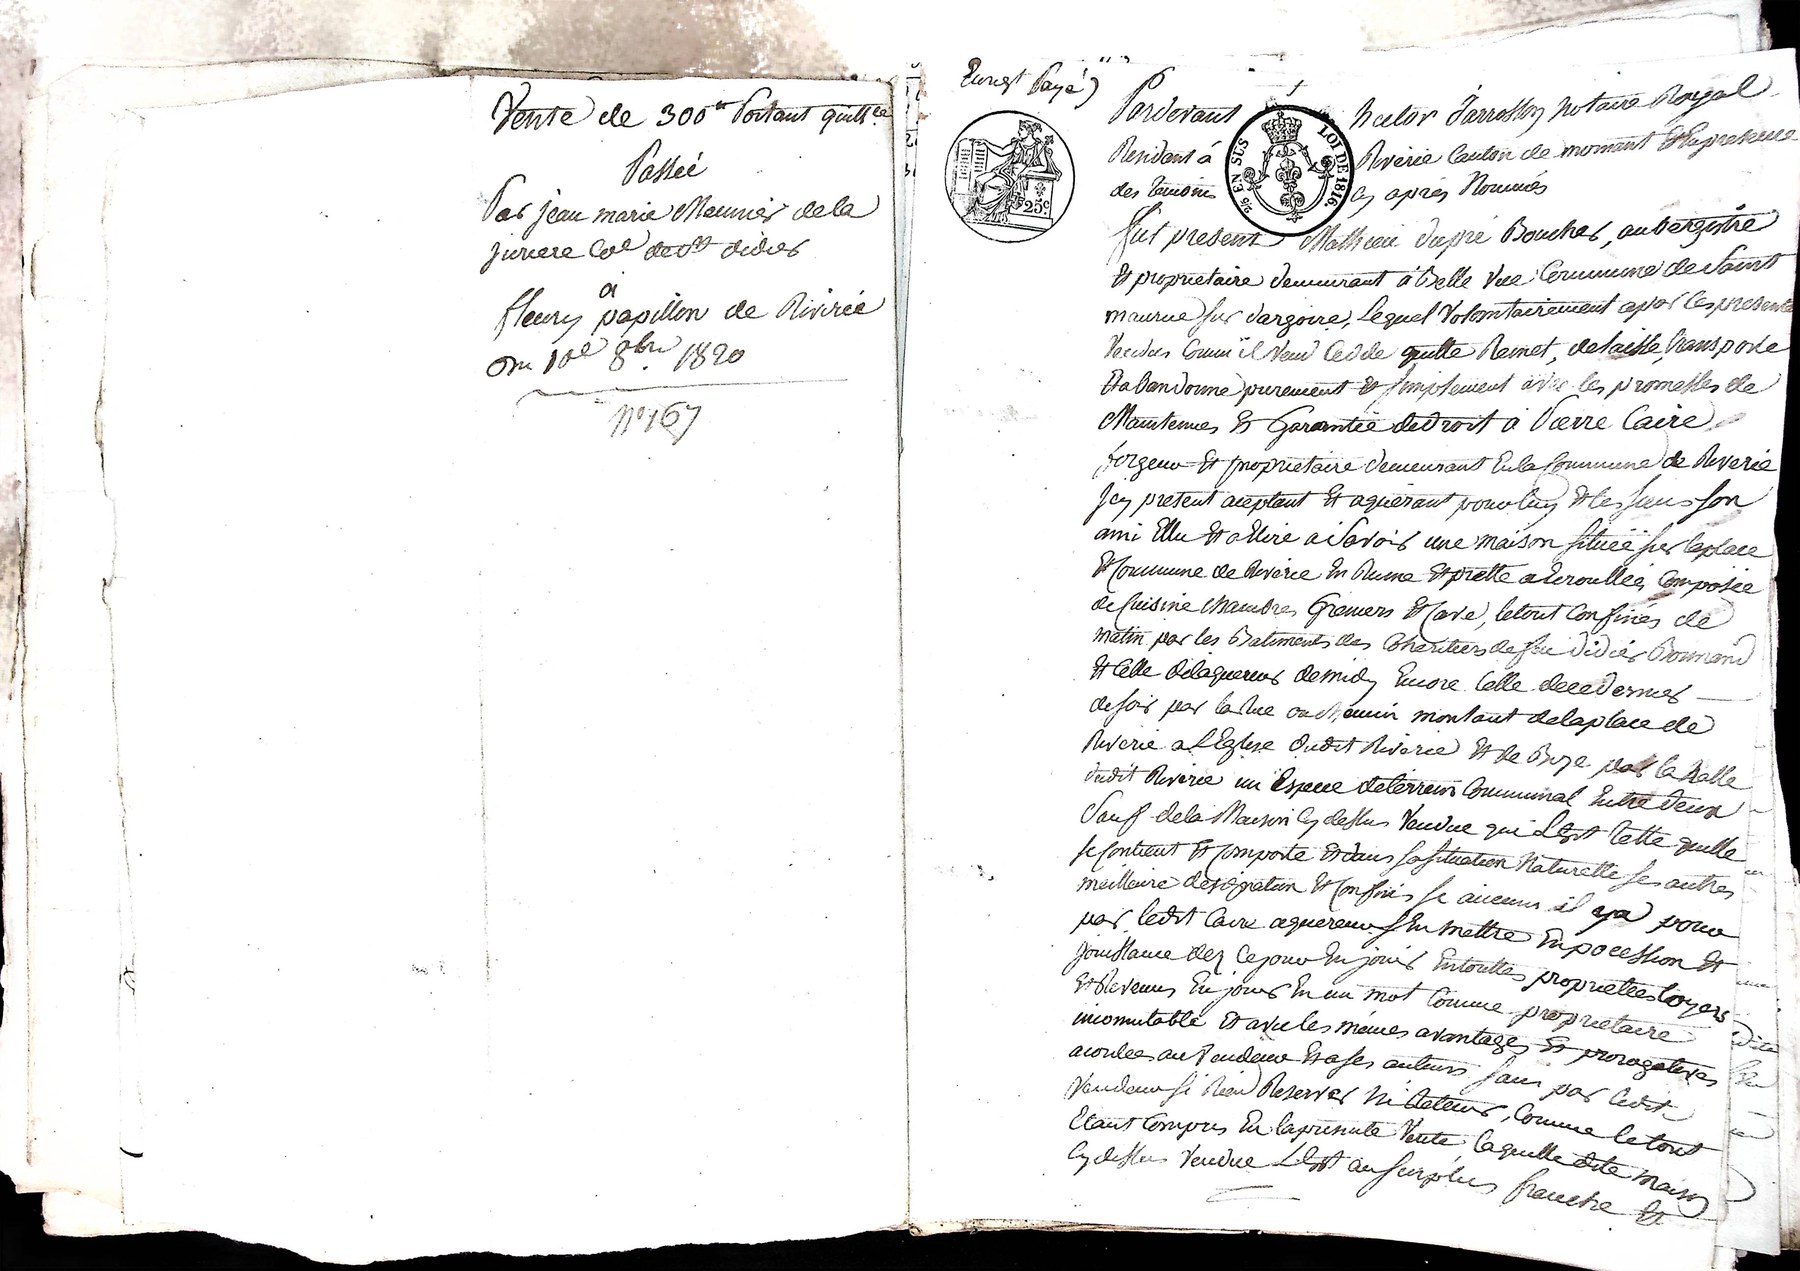 Vente de 300# Portant quittce
Passée
Par jean marie Meunier de la
juriere Coe de st didier
a
fleury papillon de Riverie
du 10e 8bre 1820
N° 167
Enregt Payé)
Pardevant Hector notaire Royal
Residant á Riverie Canton de mornant Et En presence
des temoins cy aprés Nommés
fut present Mathieu dupré Boucher, aubergiste
Et proprietaire demeurant á Belle Vue Commune de Saint
maurice sur dargoire, Lequel Volontairement a par ces presentes
Vendus Comm'il Vend Cedde quitte Remet, delaisse, transporte
Et abandonne purement Et simplement avec les promesses de
Maintenues Et Garantie de droit á Pierre Caire
forgeur Et proprietaire demeurant En la Commune de Riverie
Icy present aceptant Et aquerant pour luy Et les siens son
ami Ellu Et a Elire a Savoir une maison situeé sur la place
Et Commune de Riverie En Ruine Et prette a Ecroullée, Composée
de Cuisine chambres Greniers Et Cave, le tout Confinés de
matin par les Batiments des Coheritiers de feu didier Bonnand
Et Celle de laquereur de midy Encore Celle de ce dernier
de soir par la Rue ou chemin montant de la place de
Riverie a L'Eglise dudit Riverie Et de Bize par la halle
dudit Riverie un Espace de terrein Communal Entre deux
Sauf de la Maison cy dessus Vendue qui L'Est telle quelle
se Contient Et Comporte Et dans sa situation Naturelle ses autres
meilleure designation Et Confins se aucuns il y a pour
par ledit Caire aquereur s'En mettre En pocession Et
jouissance dez Ce jour En jouir En touttes proprietées loyers
Et Revenus En jouir En un mot Comme proprietaire
incomutable Et avec les mêmes avantages Et prorogatives
acordées au Vendeur Et a ses auteurs sans par ledit
Vendeur si Rien Reserver Ni Retenir, Comme le tout
Etant Compris En la presente Vente, laquelle dite maison
Cy dessus Vendue L'Est au surplus franche Et
25 c.
25 EN SUS
LOI DE 1816.